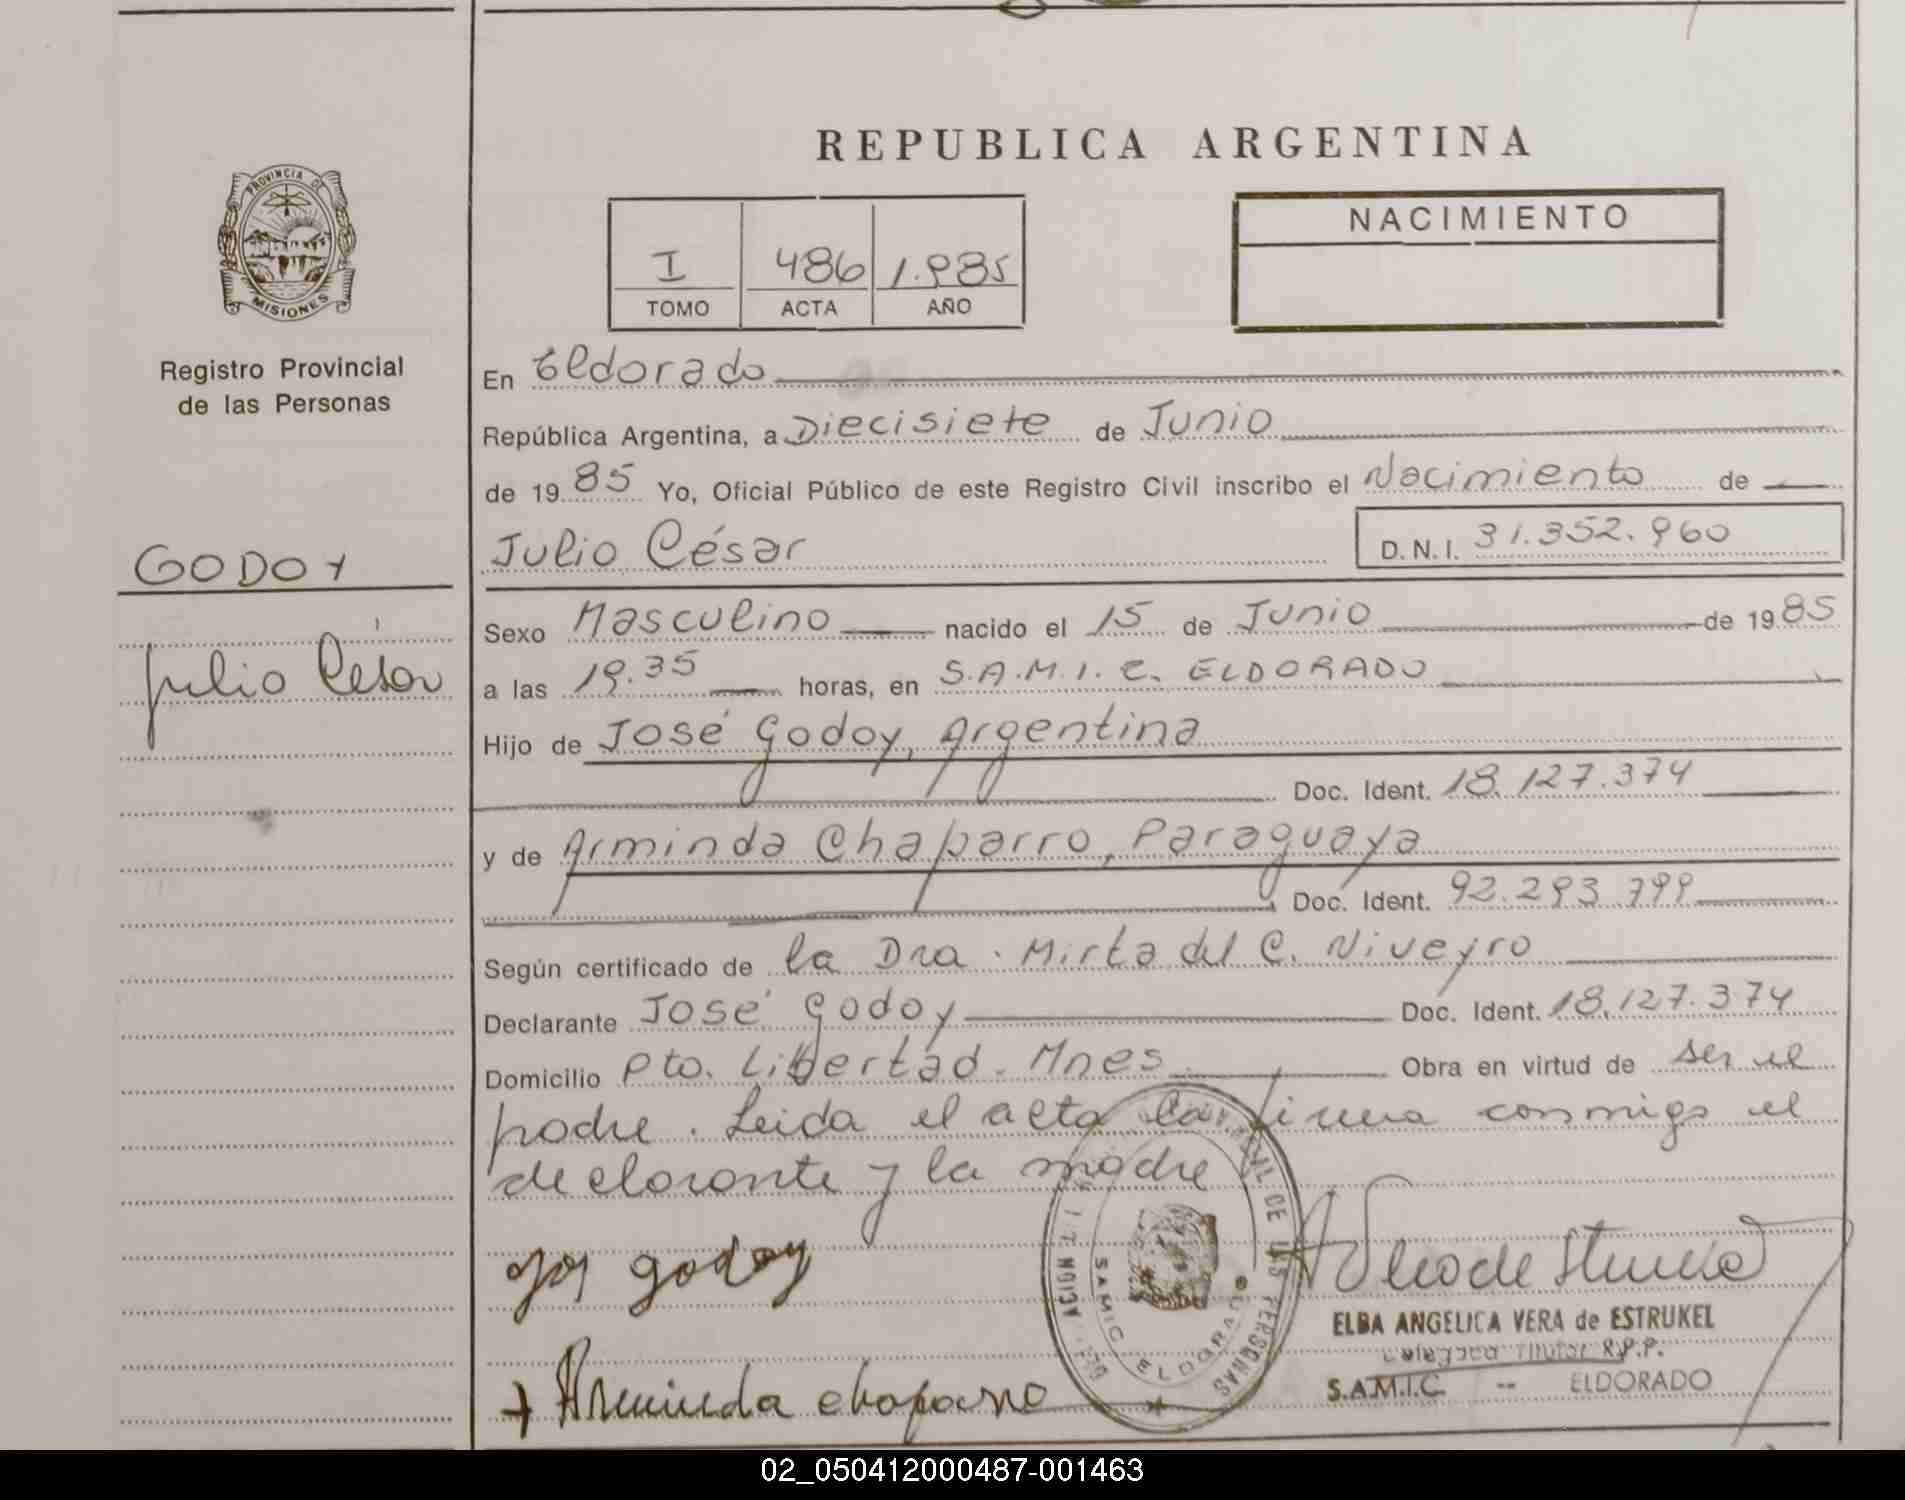 REPUBLICA ARGENTINA
PROVINCIA DE
MISIONES
Registro Provincial
de las Personas
I 486 1.985
TOMO ACTA AÑO
NACIMIENTO
En Eldorado
República Argentina, a Diecisiete de Junio
de 1985 Yo, Oficial Público de este Registro Civil inscribo el Nacimiento de
GODOY
Julio César
Julio César
D.N.I. 31.352.960
Sexo Masculino nacido el 15 de Junio de 1985
a las 19.35 horas, en S.A.M.I.C. ELDORADO
Hijo de José Godoy, Argentina
Doc. Ident. 18.127.374
y de Arminda Chaparro, Paraguaya
Doc. Ident. 92.293.799
Según certificado de la Dra. Mirta del C. Niveyro
Declarante José Godoy Doc. Ident. 18.127.374
Domicilio Pto. Libertad. Mnes Obra en virtud de ser el
padre. Leida el acta la firma conmigo el
declarante y la madre
godoy
Arminda chaparro
DE LAS PERSONAS
SAMIC ELDORADO
ELBA ANGELICA VERA de ESTRUKEL
Titular R.P.P.
S.A.M.I.C. -- ELDORADO
02_050412000487-001463